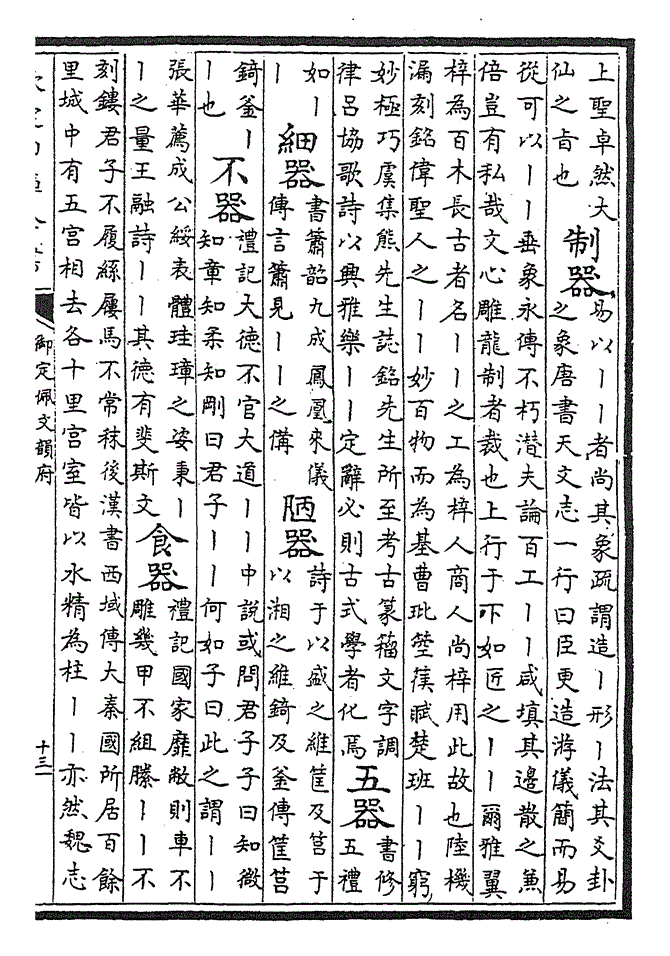 上聖卓然大
仙之旨也
制器
易以丨丨者尚其象疏謂造丨形丨法其爻卦
之象唐書天文志一行曰臣更造游儀簡而易
從可以丨丨垂象永傳不朽潜夫論百工丨丨咸填其邊散之兼
倍豈有私哉文心雕龍制者裁也上行于下如匠之丨丨爾雅翼
梓為百木長古者名丨丨之工為梓人商人尚梓用此故也陸機
漏刻銘偉聖人之丨丨妙百物而為基曹毗箜篌賦楚班丨丨窮
妙極巧虞集熊先生誌銘先生所至考古篆籀文字調
律呂協歌詩以興雅樂丨丨定辭必則古式學者化焉
五器
書修
五禮
如丨
丨
細器
書簫韶九成鳳凰來儀
傳言簫見丨丨之備
陋器
詩于以盛之維筐及筥于
以湘之維錡及釜傳筐筥
錡釜丨
丨也
不器
禮記大德不官大道丨丨中說或問君子子曰知微
知章知柔知剛曰君子丨丨何如子曰此之謂丨丨
張華薦成公綏表體珪璋之姿秉丨
丨之量王融詩丨丨其德有斐斯文
食器
禮記國家靡敝則車不
雕幾甲不組縢丨丨不
刻鏤君子不履絲屨馬不常秣後漢書西域傳大秦國所居百餘
里城中有五宮相去各十里宮室皆以水精為柱丨丨亦然魏志
御定佩文韻府
十三